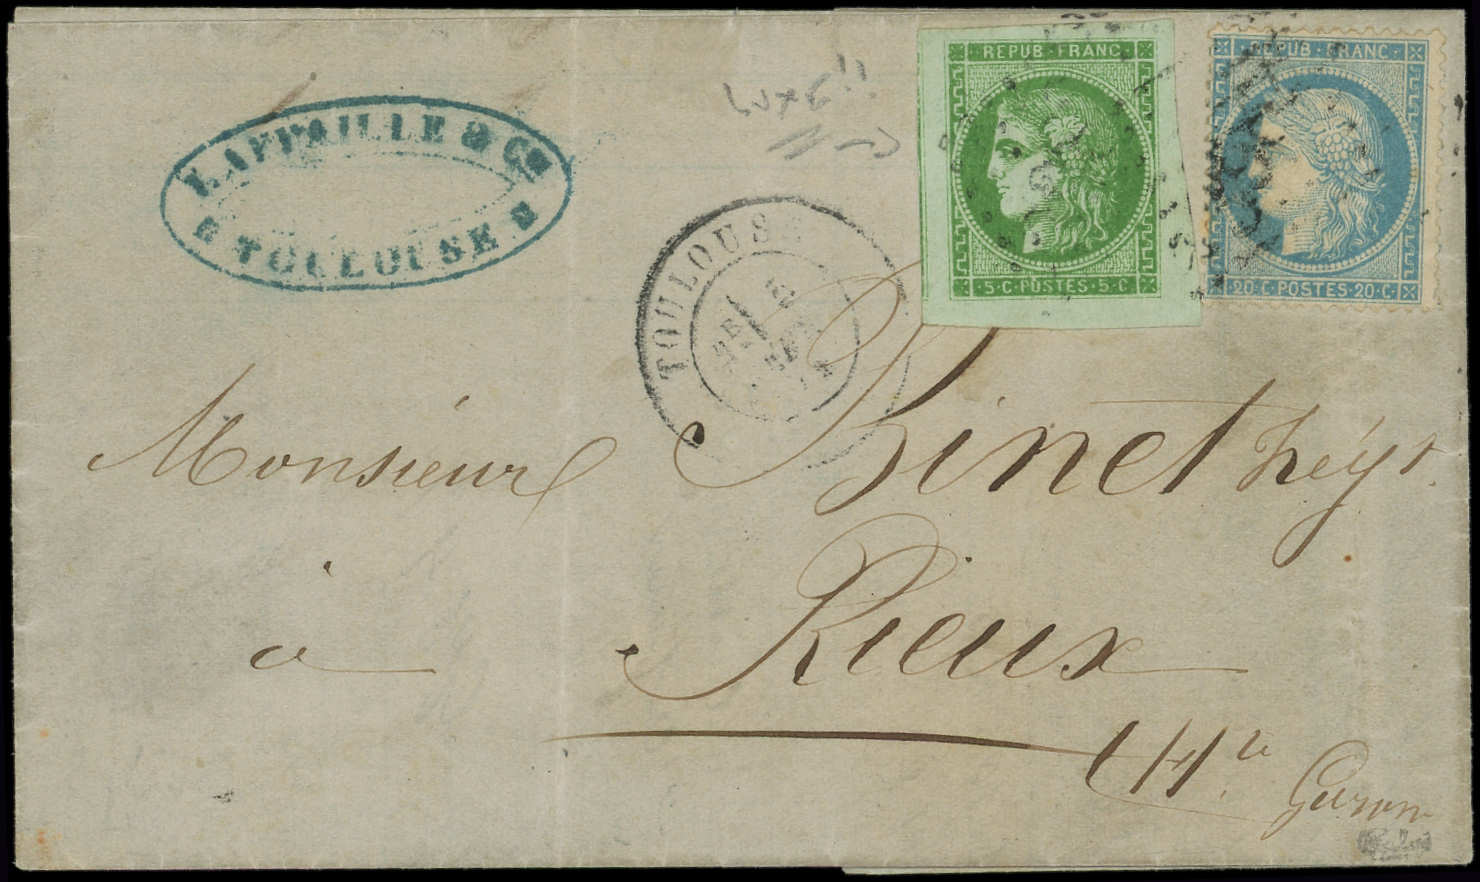 LAFFAILLE & Cie
TOULOUSE
REPUB · FRANC ·
· 5 · C · POSTES · 5 · C ·
REPUB · FRANC ·
20 · C · POSTES · 20 · C ·
TOULOUSE
Monsieur Binet
à Rieux
Hte
Garonne